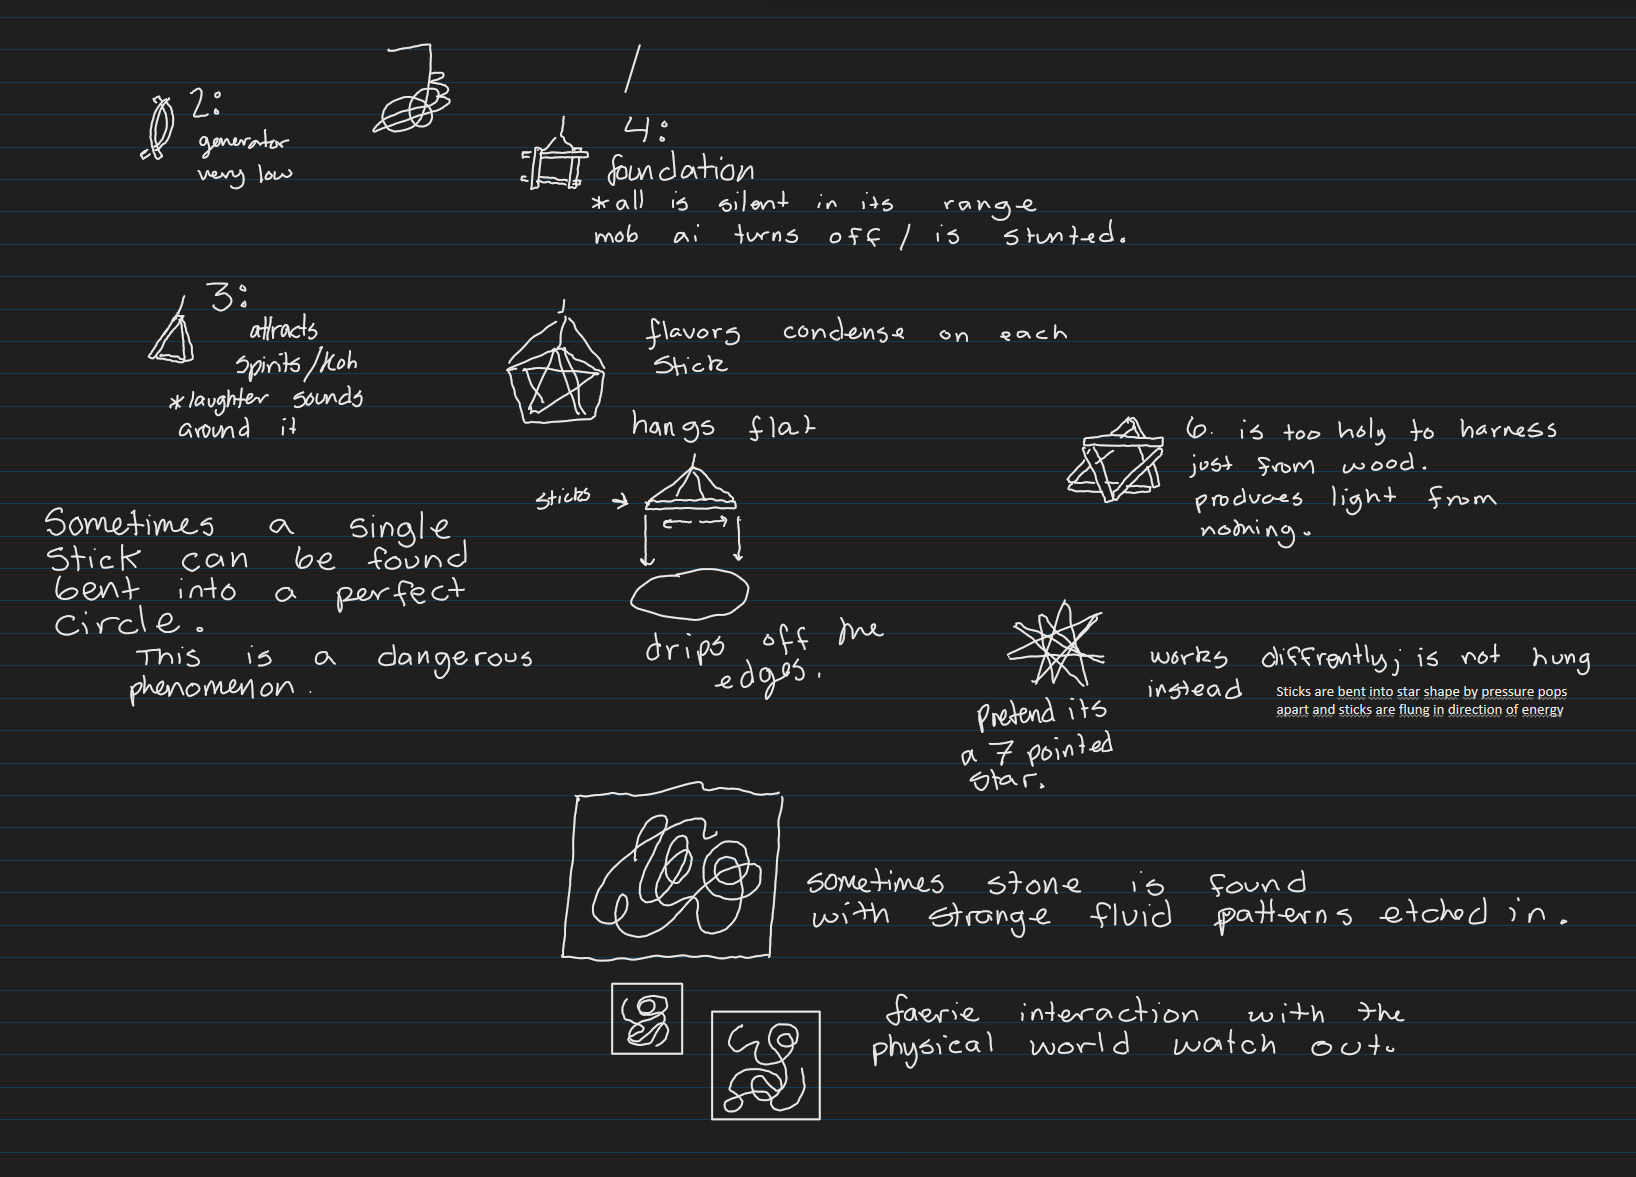 2:
generator
very low
4:
foundation
*all is silent in its range
mob ai turns off / is stunted.
3:
attracts
spirits/Koh
*laughter sounds
around it
flavors condense on each
stick
hangs flat
sticks →
drips off the
edges.
6. is too holy to harness
just from wood.
produces light from
nothing.
Sometimes a single
stick can be found
bent into a perfect
circle.
This is a dangerous
phenomenon.
works diffrently; is not hung
instead
Sticks are bent into star shape by pressure pops
apart and sticks are flung in direction of energy
Pretend its
a 7 pointed
star.
sometimes stone is found
with strange fluid patterns etched in.
faerie interaction with the
physical world watch out.